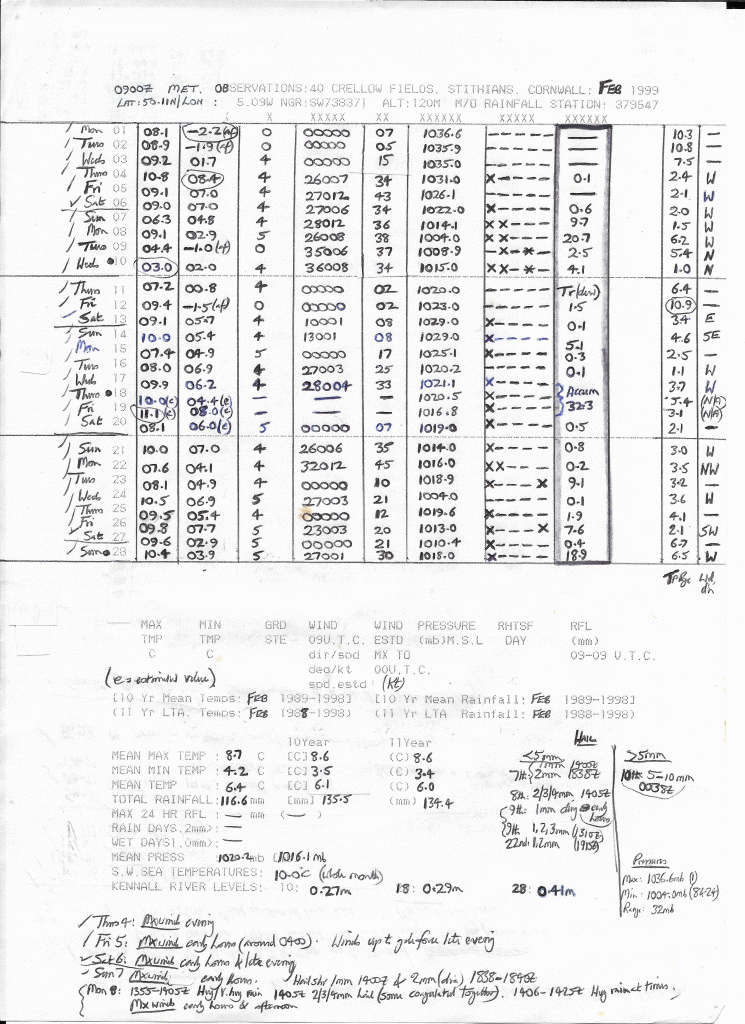 0900Z MET. OBSERVATIONS:40 CRELLOW FIELDS, STITHIANS, CORNWALL: FEB 1999
LAT:50.11N/LON : 5.09W NGR:SW738371 ALT:120M M/O RAINFALL STATION: 379547
X XXXXX XX XXXXXX XXXXX XXXXXX
/ Mon 01 08.1 -2.2(af) 0 00000 07 1036.6 ----- — 10.3 —
/ Tues 02 08.9 -1.9(af) 0 00000 05 1035.9 ----- — 10.8 —
/ Weds 03 09.2 01.7 4 00000 15 1035.0 ----- — 7.5 —
/ Thurs 04 10.8 08.4 4 26007 34 1031.0 X---- 0.1 2.4 W
/ Fri 05 09.1 07.0 4 27012 43 1026.1 ----- — 2.1 W
✓ Sat 06 09.0 07.0 4 27006 34 1022.0 X---- 0.6 2.0 W
/ Sun 07 06.3 04.8 4 28012 36 1014.1 XX--- 9.7 1.5 W
/ Mon 08 09.1 02.9 5 26008 38 1004.0 X---- 20.7 6.2 W
/ Tues 09 04.4 -1.0(af) 0 35006 37 1008.9 X--*-- 2.5 5.4 N
/ Weds 10 03.0 02.0 4 36008 34 1015.0 XX-*- 4.1 1.0 N
/ Thurs 11 07.2 00.8 4 00000 02 1020.0 ----- Tr(dew) 6.4 —
/ Fri 12 09.4 -1.5(af) 0 00000 02 1023.0 X---- 1.5 10.9 —
/ Sat 13 09.1 05.7 4 10001 08 1029.0 X---- 0.1 3.4 E
/ Sun 14 10.0 05.4 4 13001 08 1029.0 X---- 5.1 4.6 SE
/ Mon 15 07.4 04.9 5 00000 17 1025.1 X---- 0.3 2.5 —
/ Tues 16 08.0 06.9 4 27003 25 1020.2 ----- 0.1 1.1 W
/ Weds 17 09.9 06.2 4 28004 33 1021.1 X---- } Accum 3.7 W
/ Thurs 18 10.0(e) 04.4(e) — — — 1020.5 X---- } 5.4 (N/A)
/ Fri 19 11.1(e) 08.0(e) — — — 1016.8 X---- } 32.3 3.1 (N/A)
/ Sat 20 08.1 06.0(e) 5 00000 07 1019.0 X---- 0.5 2.1 —
/ Sun 21 10.0 07.0 4 26006 35 1014.0 X---- 0.8 3.0 W
/ Mon 22 07.6 04.1 4 32012 45 1016.0 XX--- 0.2 3.5 NW
/ Tues 23 08.1 04.9 4 00000 10 1018.9 X---X 9.1 3.2 —
/ Weds 24 10.5 06.9 5 27003 21 1004.0 X---- 0.1 3.6 W
/ Thurs 25 09.5 05.4 4 00000 12 1019.6 X---- 1.9 4.1 —
/ Fri 26 09.8 07.7 5 23003 20 1013.0 X---X 7.6 2.1 SW
/ Sat 27 09.6 02.9 5 00000 21 1010.4 X---- 0.4 6.7 —
/ Sun 28 10.4 03.9 5 27001 30 1018.0 X---- 18.9 6.5 W
TpRge Wd dn
MAX MIN GRD WIND WIND PRESSURE RHTSF RFL
TMP TMP STE 09U.T.C. ESTD (mb)M.S.L DAY (mm)
C C dir/spd MX TO 09-09 U.T.C.
deg/kt 00U.T.C.
(e = estimated value) spd.estd (kt)
[10 Yr Mean Temps: FEB 1989-1998] [10 Yr Mean Rainfall: FEB 1989-1998]
(11 Yr LTA. Temps: FEB 1988-1998) (11 Yr LTA Rainfall: FEB 1988-1998)
10Year 11Year
MEAN MAX TEMP : 8.7 C [C] 8.6 (C) 8.6
MEAN MIN TEMP : 4.2 C [C] 3.5 (C) 3.4
MEAN TEMP : 6.4 C [C] 6.1 (C) 6.0
TOTAL RAINFALL: 116.6 mm [mm] 135.5 (mm) 134.4
MAX 24 HR RFL : — mm (—)
RAIN DAYS.2mm): —
WET DAYS1.0mm): —
MEAN PRESS : 1020.2mb [1016.1 mb
S.W.SEA TEMPERATURES: 10.0°C (whole month)
KENNALL RIVER LEVELS: 10: 0.27m 18: 0.29m 28: 0.41m
HAIL
<5mm
7th: 1mm 1405Z
2mm 1838Z
8th: 2/3/4mm 1405Z
9th: 1mm early hours
9th: 1,2,3mm (1310Z)
22nd: 1,2mm (1915Z)
>5mm
10th: 5-10mm
0038Z
Pressures
Max: 1036.6mb (1)
Min: 1004.0mb (8+24)
Range: 32mb
/ Thurs 4: Mx wind evening
/ Fri 5: Mx wind early hours (around 0400). Winds up to gale force late evening
✓ Sat 6: Mx wind early hours & late evening
~ Sun 7 Mx wind early hours. Hail shr 1mm 1400Z & 2mm (dia) 1838-1848Z
/ Mon 8: 1355-1405Z Hvy/V.hvy rain 1405Z 2/3/4mm hail (some coagulated together). 1406-1425Z Hvy rain at times.
Mx winds early hours & afternoon